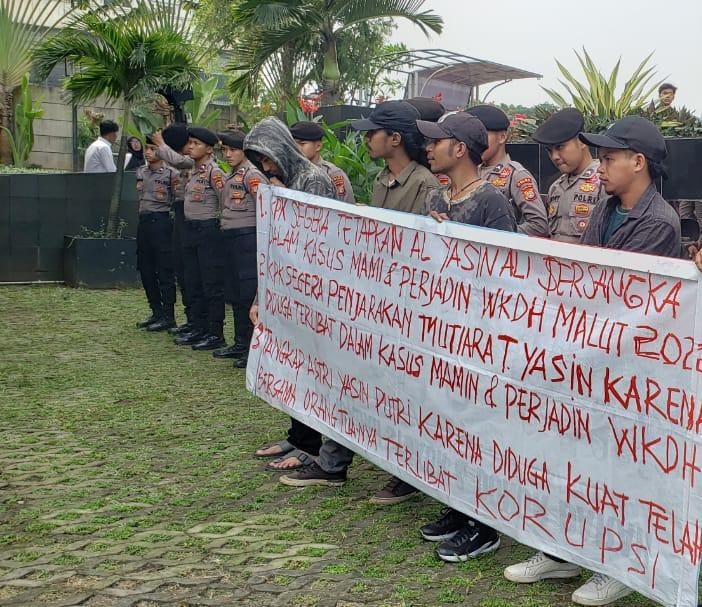 1. KPK SEGERA TETAPKAN AL YASIN ALI BERSANGKA
DALAM KASUS MAMI & PERJADIN WKDH MALUT 2022
2. KPK SEGERA PENJARAKAN MUTIARA T. YASIN KARENA
DIDUGA TERLIBAT DALAM KASUS MAMIN & PERJADIN WKDH
3. TANGKAP ASTRI YASIN PUTRI KARENA DIDUGA KUAT TELAH
BERSAMA ORANGTUANYA TERLIBAT KORUPSI
POLRI